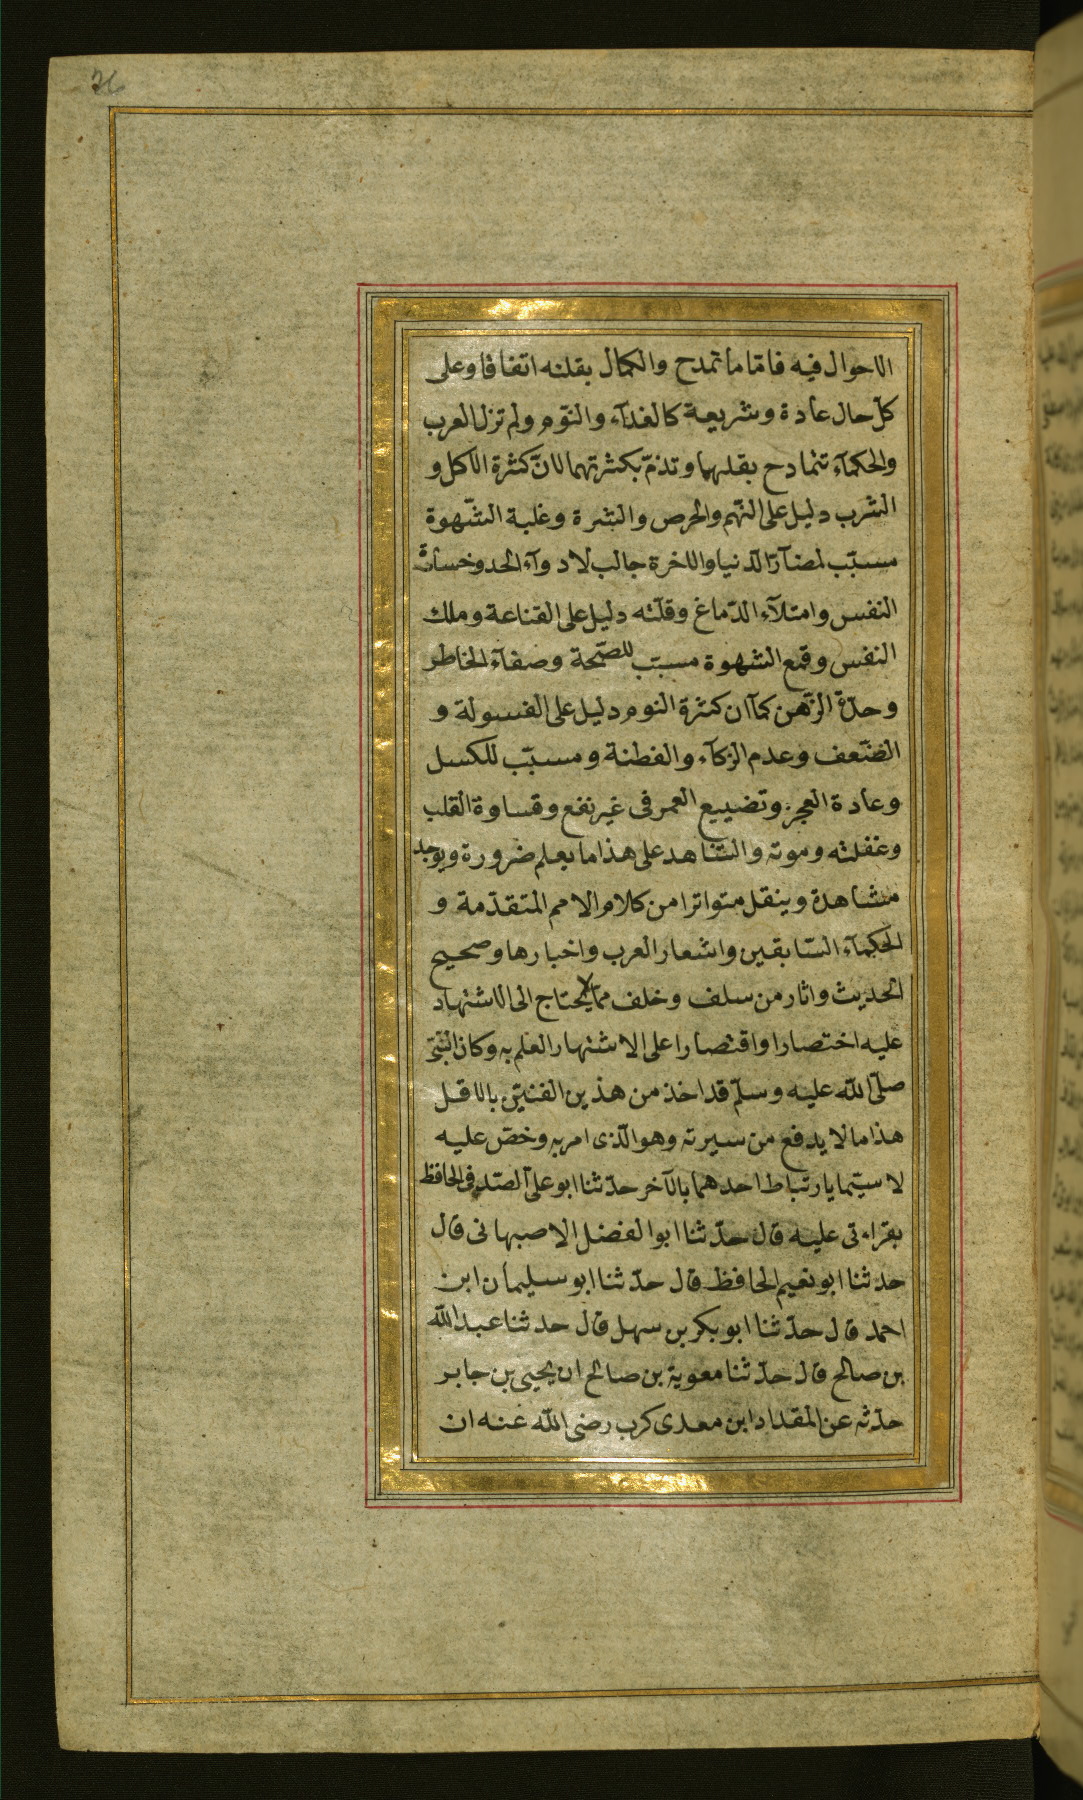 الاحوال فيه فامّا ما تمدح والكمال بقلته اتفاقا وعلى
كلّ حال عادة وشريعة كالغدآء والنّوم ولم تزل العرب
والحكمآء تتمادح بقلهما وتذمّ بكثرتهما لانّ كثرة الاكل و
الشرب دليل على النّهم والحرص والشره وغلبة الشّهوة
مسبّب لمضآرّ الدّنيا والاخرة جالب لادوآء الجسد وخسارة
النفس وامتلآء الدّماغ وقلّته دليل على القناعة وملك
النفس وقمع الشهوة مسبّب للصّحة وصفآء الخاطر
وحدّة الذّهن كمآ ان كثرة النوم دليل على الفسولة و
الضّعف وعدم الزكآء والفطنة ومسبّب للكسل
وعادة العجز وتضييع العمر فى غير نفع وقساوة القلب
وغفلته وموته والشّاهد على هذا ما يعلم ضرورة ويوجد
مشاهدة وينقل متواترا من كلام الامم المتقدّمة و
الحكمآء السّابقين واشعار العرب واخبارها وصحيح
الحديث واثار من سلف وخلف ممّا لا يحتاج الى الاشتهاد
عليه اختصارا واقتصارا على الاشتهار العلم به وكان النّبىّ
صلّى اللّه عليه وسلّم قد اخذ من هذين الفنّين بالاقل
هذا ما لا يدفع من سيرته وهو الّذى امر به وحضّ عليه
لا سيّما بارتباط احدهما بالآخر حدّثنا ابو علىّ الصّدفى الحافظ
بقراءتى عليه قال حدّثنا ابو الفضل الاصبهانى قال
حدثنا ابو نعيم الحافظ قال حدّثنا ابو سليمان ابن
احمد قال حدّثنا ابو بكر بن سهل قال حدثنا عبد اللّه
بن صالح قال حدّثنا معوية بن صالح ان يحيى بن جابر
حدّثه عن المقداد ابن معدى كرب رضى اللّه عنه ان